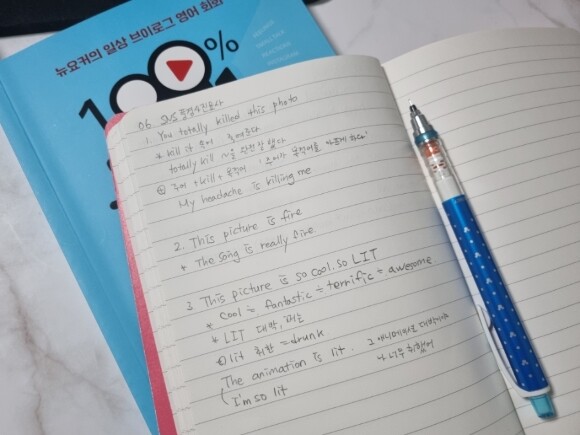 뉴요커의 일상 브이로그 영어 회화
100%
06. SNS 풍경사진묘사
1. You totally killed this photo
* kill it 죽여
totally kill ~을 완전 잘 했다
주어 + kill + 목적어 '주어가 목적어를 아프게 하다'
My headache is killing me
2. This picture is fire
* The song is really fire
3. This picture is so cool. so LIT
* cool = fantastic = terrific = awesome
* LIT 대박, 쩌는
lit 취한 = drunk
The animation is lit. 그 애니메이션 대박이야
I'm so lit 나 너무 취했어